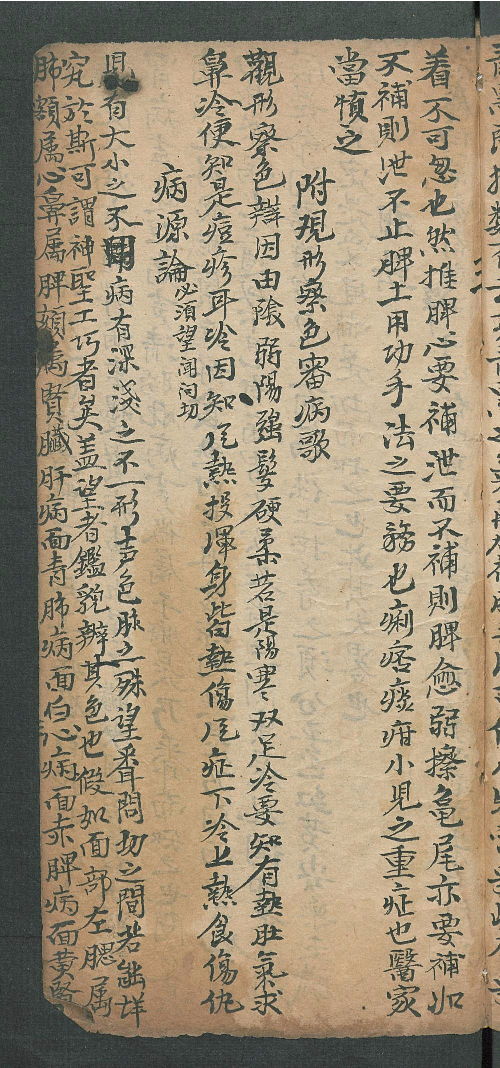 着一不可忽也然推脾心要補泄而不補則脾愈弱擦龜尾亦要補如
不補則泄不止脾土用功手法之要務也痢痞痰疳小児之重症也醫家
當慎之
附現形察色審病歌
觀形察色辨因由陰弱陽強髮硬柔若是陽寒双足冷要知有熱肚氣求
鼻冷便知是痘疹耳冷因知風熱投渾身皆熱傷風症下冷上熱食傷仇
病源論必須望聞问切
児有大小之不同病有深淺之不一形声色脉之殊望聞問切之間若能详
究於斯可謂神聖工巧者矣盖望者鑑貌辨其色也假如面部左腮属
肺額属心鼻属脾頦属腎臟肝病面青肺病面白心病面赤脾病面黄腎